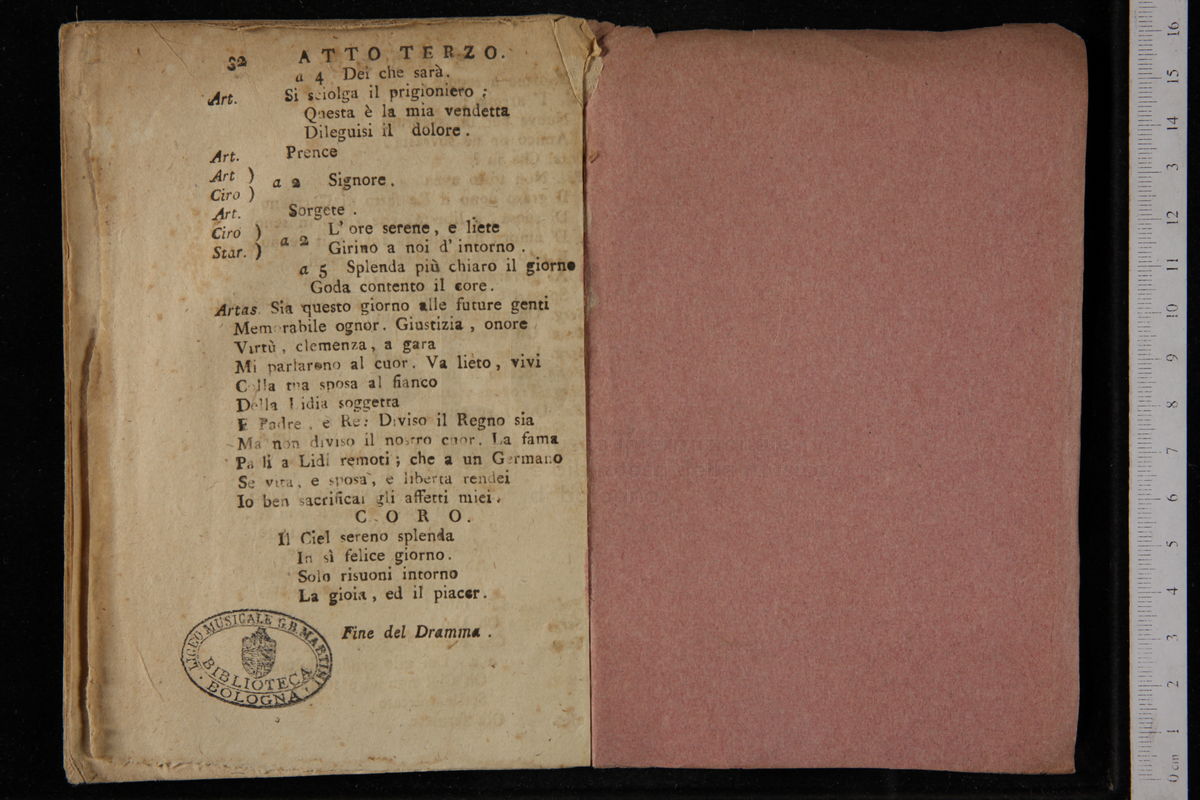 52 ATTO TERZO.
a 4 Dei che sarà.
Art. Si sciolga il prigioniero ;
Questa è la mia vendetta
Dileguisi il dolore .
Art. Prence
Art )
Ciro ) a 2 Signore .
Art. Sorgete .
Ciro ) L' ore serene , e liete
Star. ) a 2 Girino a noi d' intorno .
a 5 Splenda più chiaro il giorno
Goda contento il core .
Artas. Sia questo giorno alle future genti
Memorabile ognor . Giustizia , onore
Virtù , clemenza , a gara
Mi parlarono al cuor . Va lieto , vivi
Colla tua sposa al fianco
Della Lidia soggetta
E Padre , e Re : Diviso il Regno sia
Ma non diviso il nostro cuor . La fama
Parli a Lidi remoti ; che a un Germano
Se vita , e sposa , e liberta rendei
Io ben sacrificai gli affetti miei .
CORO.
Il Ciel sereno splenda
In sì felice giorno .
Solo risuoni intorno
La gioia , ed il piacer .
Fine del Dramma .
LICEO MUSICALE G.B. MARTINI
BIBLIOTECA
· BOLOGNA ·
0 cm 1 2 3 4 5 6 7 8 9 10 11 12 13 14 15 16